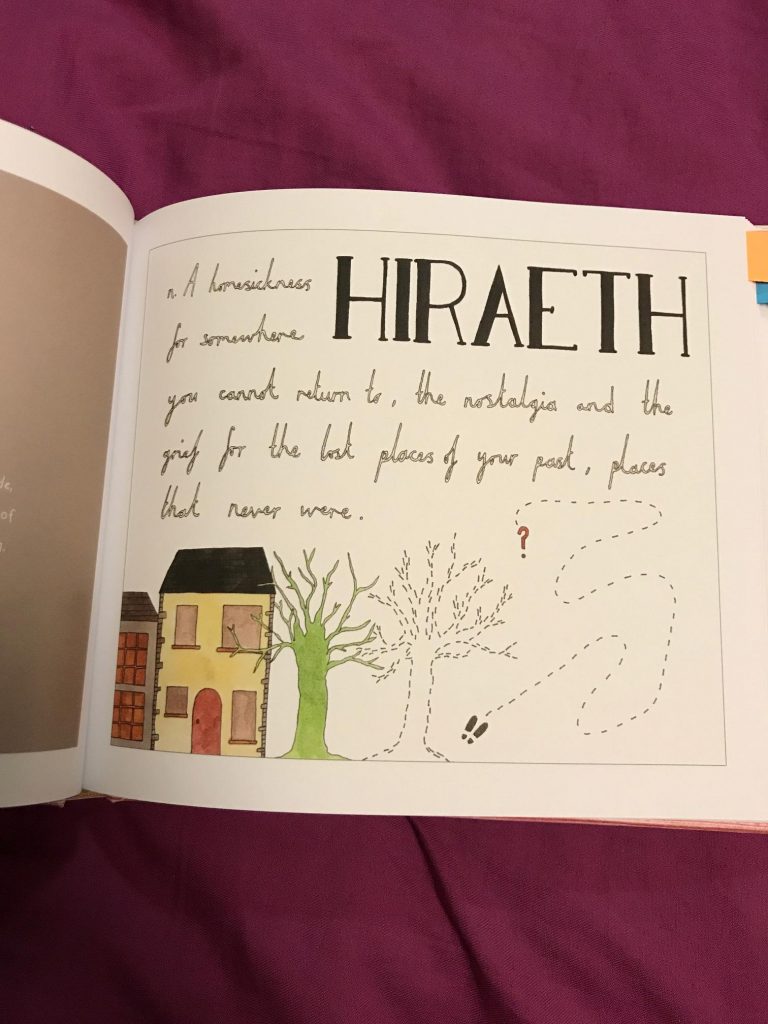 de,
of
n. A homesickness
HIRAETH
for somewhere
you cannot return to, the nostalgia and the
grief for the lost places of your past, places
that never were.
?